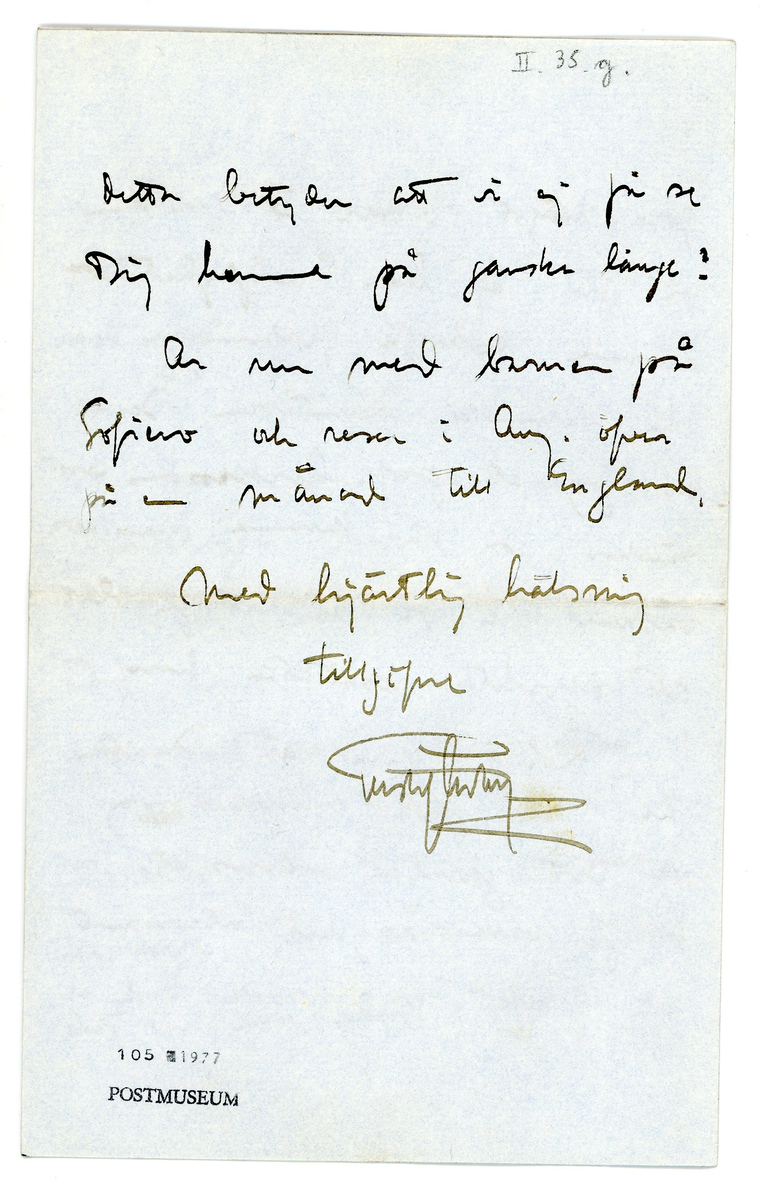 II. 35. g.
detta betyder att vi ej få se
Dig hemma på ganska länge?
Är nu med barnen på
Sofiero och reser i Aug. öfver
på en månad till England.
Med hjärtlig hälsning
tillgifne
Gustaf Adolf
105 1977
POSTMUSEUM